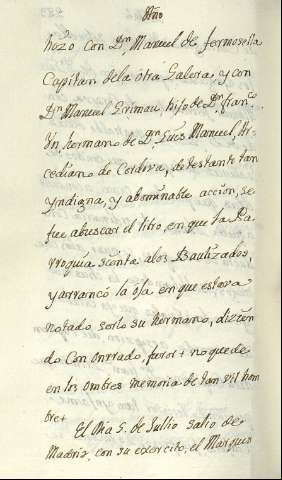 hozo con Dn Manuel de formosella
Capitan dela otra Galera, y con
Dn Manuel Grimau hijo de Dn franco
Vn hermano de Dn Luis Manuel, Ar
cediano de Cordova, detestante tan
yndigna, y abominable accion, se
fue abuscar el libro, en que la Pa
rroquia sienta alos Bautizados,
y arrancó la oja en que estava
notado su hermano, dizien
do con onrrado, furor no quede
en los ombres memoria de tan vil hom
bre
El Dia 5. de Jullio salio de
Madrid, con su exercito, el Marques